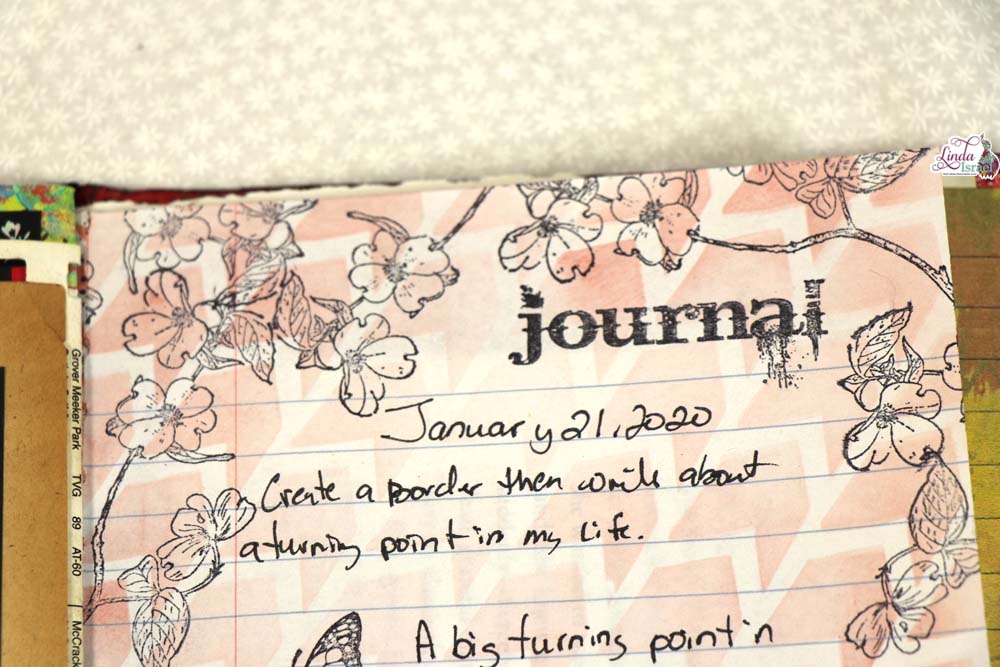 Linda
Israel
journal
January 21, 2020
Create a border then write about
a turning point in my life.
A big turning point in
Grover Meeker Park TVG 89 AT-60 McCrack